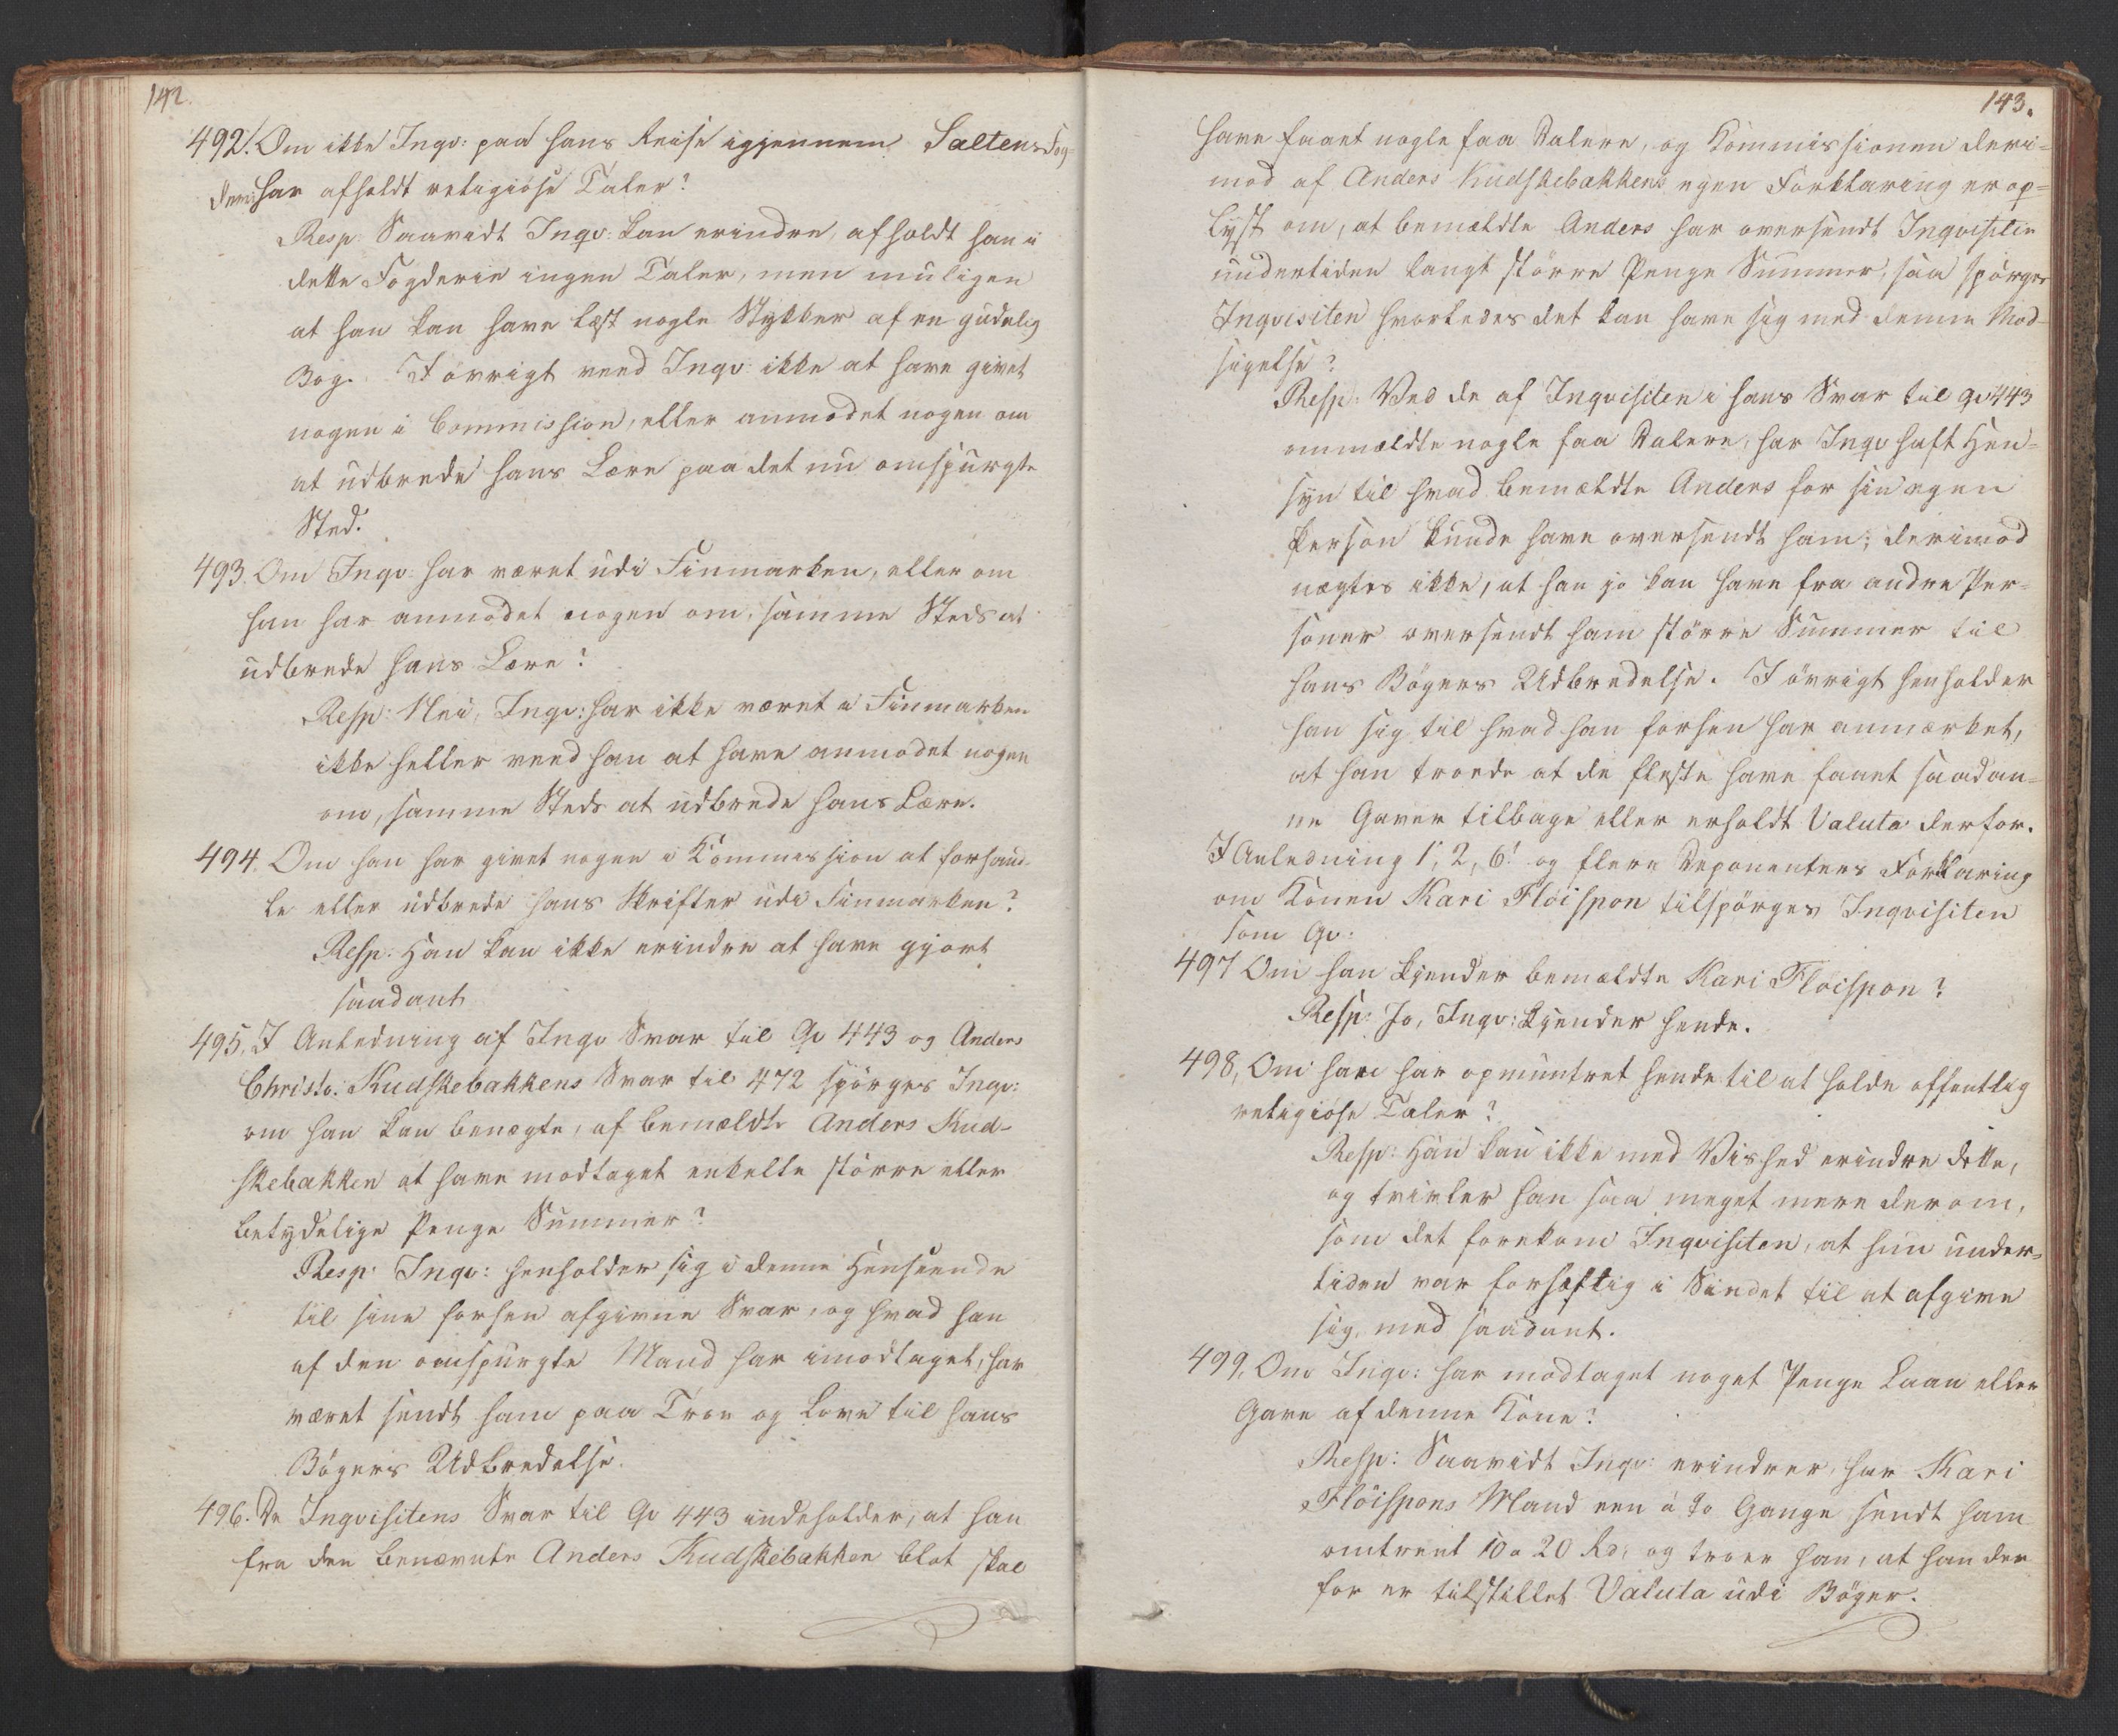 142.
492. Om ikke Inqv: paa hans Reise igjennem Saltens Fog-
derie har afholdt religiöse Taler?
Resp: Saavidt Inqv: kan erindre, afholdt han i
dette Fogderie ingen Taler, men muligen
at han kan have læst nogle Stykker af en gudelig
Bog. I övrigt veed Inqv: ikke at have givet
nogen i Commission, eller anmodet nogen om
at udbrede hans Lære paa det nu omspurgte
Sted.
493. Om Inqv: har været udi Finmarken, eller om
han har anmodet nogen om, samme Steds at
udbrede hans Lære?
Resp: Nei, Inqv: har ikke været i Finmarken
ikke heller veed han at have anmodet nogen
om, samme Steds at udbrede hans Lære.
494. Om han har givet nogen i Kommission at forhand-
le eller udbrede hans Skrifter udi Finmarken?
Resp: Han kan ikke erindre at have gjort
saadant
495. I Anledning af Inqv Svar til Qv 443 og Anders
Christo: Kudskebakkens Svar til 472 spörges Inqv:
om han kan benegte, af bemældte Anders Kud-
skebakken at have modtaget enkelte större eller
betydelige Penge Summer?
Resp: Inqv: henholder sig i denne Henseende
til sine forhen afgivne Svar, og hvad han
af den omspurgte Mand har imodtaget, har
været sendt ham paa Troe og Love til hans
Bögers Udbredelse.
496. Da Inqvisitens Svar til Qv 443 indeholder, at han
fra den benævnte Anders Kudskebakken blot skal
143.
have faaet nogle faa Dalere, og Kommissionen deri-
mod af Anders Kudskebakkens egen Forklaring er op-
lyst om, at bemældte Anders har oversendt Inqvisiten
undertiden langt större Penge Summer, saa spörges
Inqvisiten hvorledes det kan have sig med denne Mod-
sigelse?
Resp: Ved de af Inqvisiten i hans Svar til qv 443
ommældte nogle faa Dalere, har Inqv haft Hen-
syn til hvad bemældte Anders for sin egen
Person kunde have oversendt ham; derimod
nægtes ikke, at han jo kan have fra andre Per-
soner oversendt ham större Summer til
hans Bögers Udbredelse. I övrigt henholder
han sig til hvad han forhen har anmærket,
at han troede at de fleste have faaet saadan-
ne Gaver tilbage eller erholdt Valuta derfor.
I Anledning 1, 2, 6 og flere Deponenters Forklaring
om Konen Kari Flöispon tilspörges Inqvisiten
som Qv:
497 Om han kjender bemældte Kari Flöispon?
Resp: Jo, Inqv: kjender hende.
498, Om han har opmuntret hende til at holde offentlig
religiöse Taler?
Resp: Han kan ikke med Vished erindre dette,
og tvivler han saa meget mere derom,
som det forekom Inqvisiten, at hun under-
tiden var forhæftig i Sindet til at afgive
sig med saadant.
499. Om Inqv: har modtaget noget Penge Laan eller
Gave af denne Kone?
Resp: Saavidt Inqv: erindrer, har Kari
Flöispons Mand een à to Gange sendt ham
omtrent 10 a 20 Rd, og troer han, at han der
for er tilstillet Valuta udi Böger.